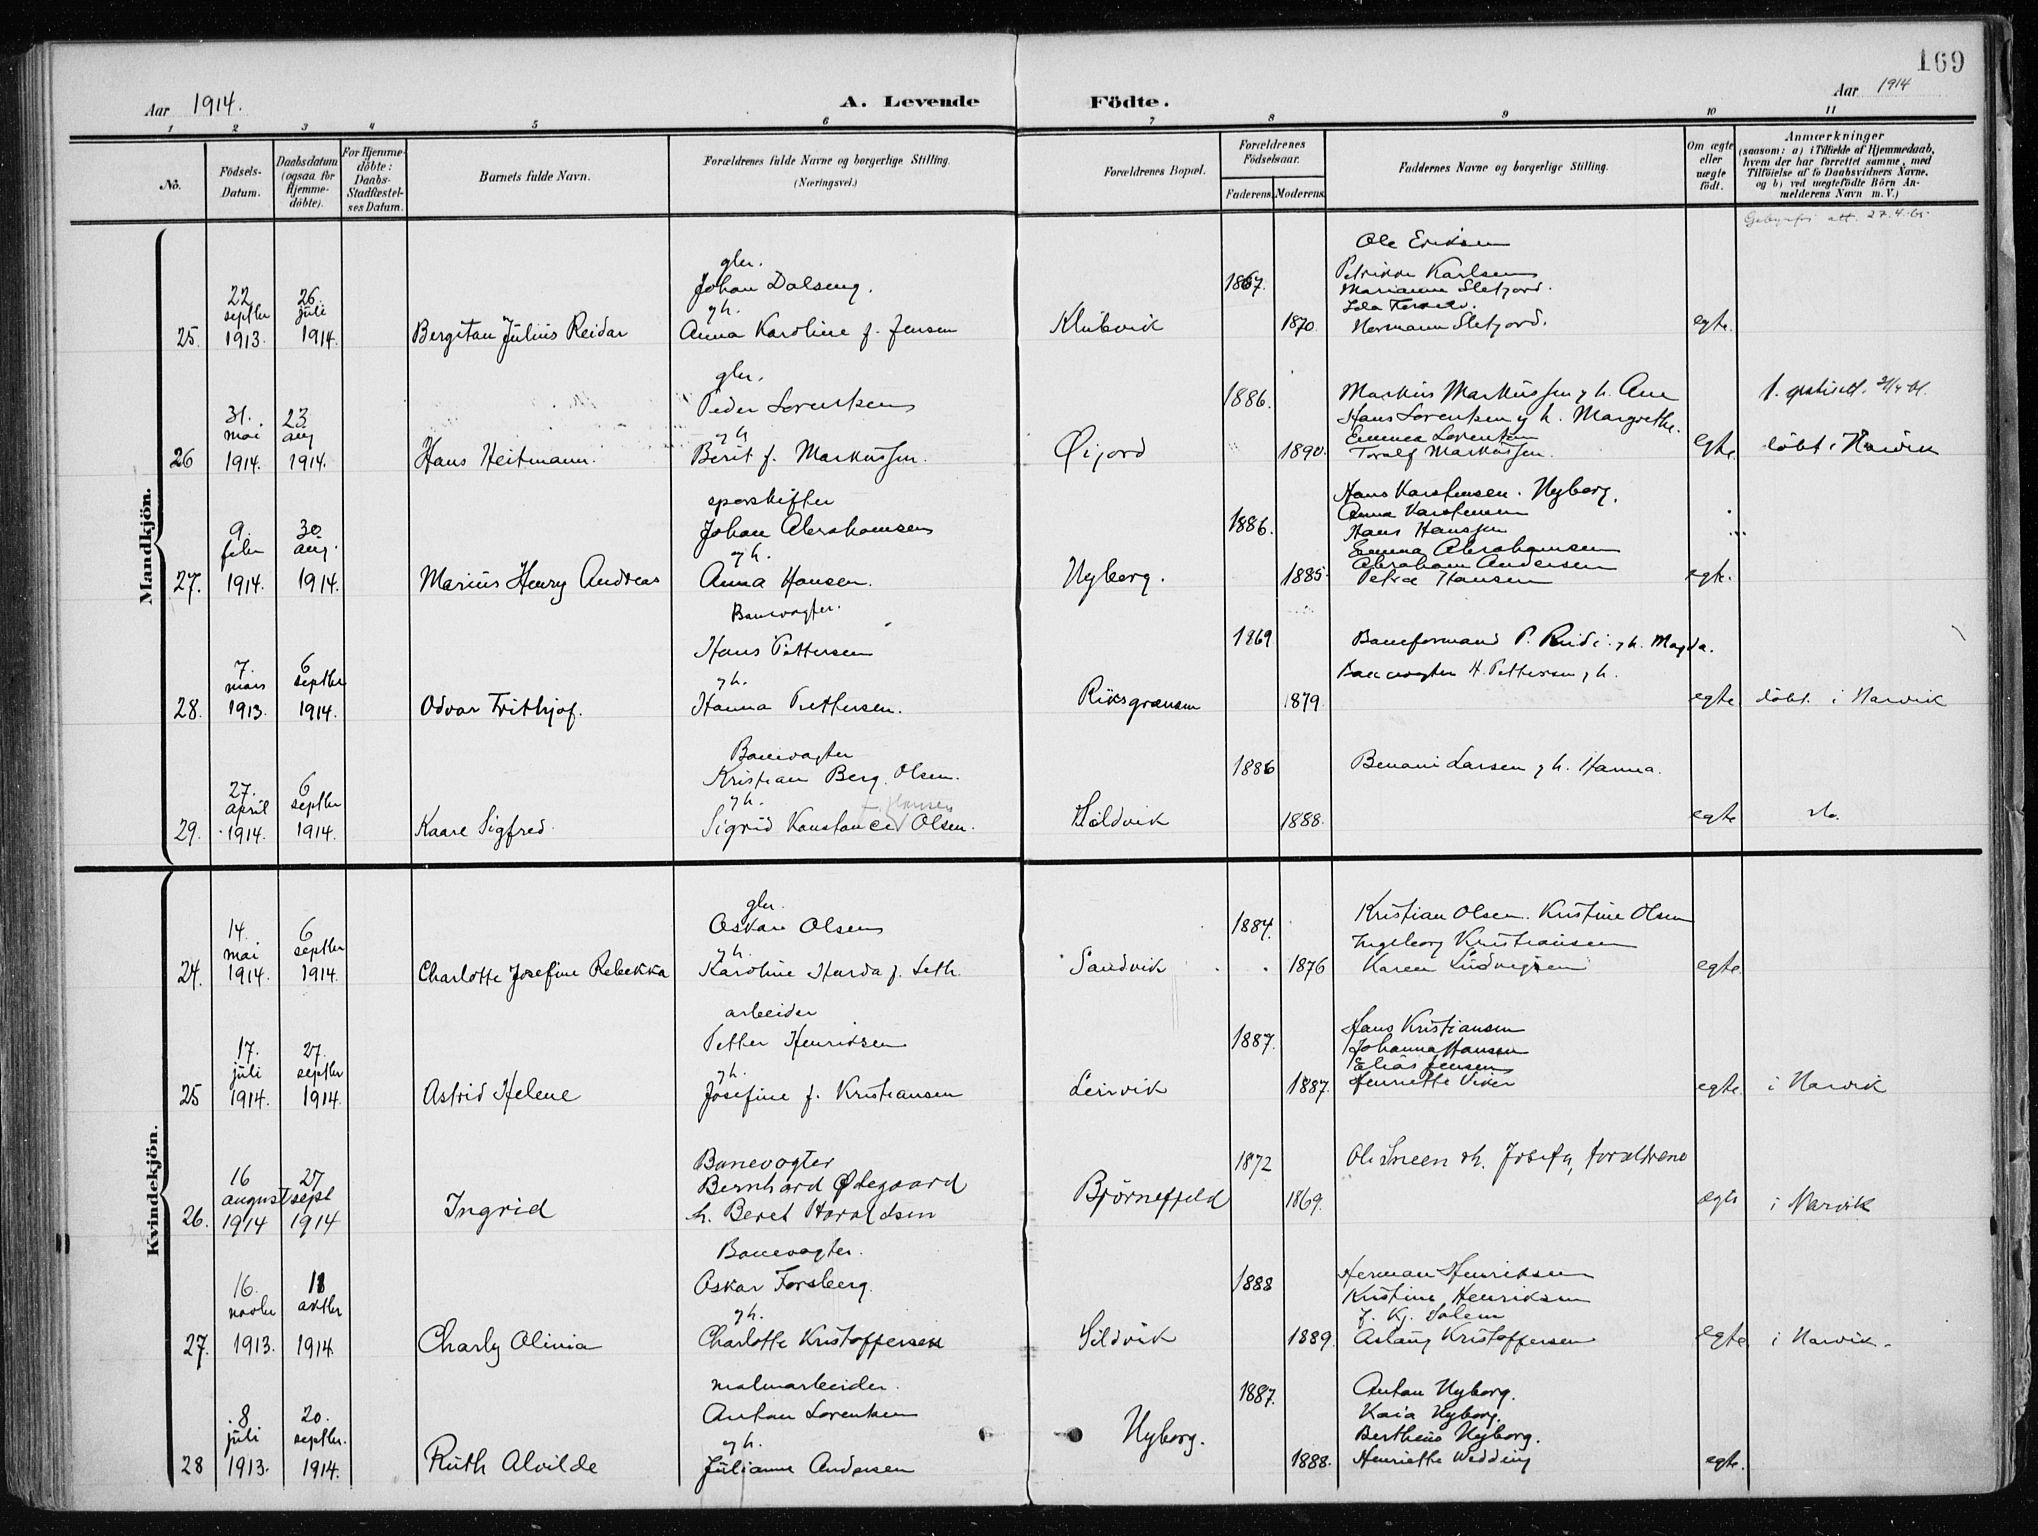 169
Aar 1914.
A. Levende Födte.
Aar 1914
1 2 3 4 5 6 7 8 9 10 11
No.
Födsels-
Datum.
Daabsdatum
(ogsaa for
Hjemme-
döbte).
For Hjemme-
döbte:
Daabs-
Stadfæstel-
ses Datum.
Barnets fulde Navn.
Forældrenes fulde Navne og borgerlige Stilling.
(Næringsvei.)
Forældrenes Bopæl.
Forældrenes
Födselsaar.
Faderens. Moderens.
Faddernes Navne og borgerlige Stilling.
Om ægte
eller
uægte
födt.
Anmærkninger
(saasom: a) i Tilfælde af Hjemmedaab,
hvem der har forrettet samme, med
Tilföielse af to Daabsvidners Navne.
og b) ved uægtefödte Börn An-
melderens Navn m. V.)
att. 27.4.
Mandkjön.
25. 22 septbr 1913. 26. juli 1914.
Bergitan Julius Reidar
gbr.
Johan Dalseng.
g h.
Anna Karoline f. Jensen
Klubvik
1867.
1870.
Ole Eriksen
Petrikke Karlsen
Marianne Sletjord.
Hermann Sletjord.
egte.
26 31. mai 1914. 23 aug 1914.
Hans Heitmann.
gbr.
Peder Lorentsen
g h
Berit f. Markussen.
Øijord
1886.
1890.
Markus Markussen g h. Ane
Hans Lorentsen g h. Margrethe.
Emmea Lorentsen
Toralf Markussen.
egte.
döbt i Narvik
27. 9. febr 1914. 30 aug. 1914.
Marius Henry Andreas
sporskifter
Johan Abrahamsen
g h.
Anna Hansen.
Nyborg.
1886.
1885.
Hans Karstensen. Nyborg.
Anna Karstensen
Hans Hanssen
Emma Abrahamsen
Abraham Andersen
Petra Hansen
egte.
28. 7. mars 1913. 6 septbr 1914.
Odvar Frithjof.
Banevogter.
Hans Pettersen
g h.
Hanna Pettersen.
Riksgrænsen
1869
1879.
Baneformand P. g h. Magda.
Banevogter H. Pettersen g h.
egte
döbt. i Narvik
29. 27. april 1914. 6 septbr 1914.
Kaare Sigfred.
Banevogter
Kristian Berg. Olsen.
g h.
f. Hansen
Sigrid Konstance Olsen.
Sildvik
1886
1888.
Benoni Larsen g h. Hanna.
egte
do.
Kvindekjön.
24. 14. mai 1914. 6 septbr 1914.
Charlotte Josefine Rebekka
gbr.
Oskar Olsen
g h.
Karoline Hurda f. Seth.
Sandvik
1884.
1876
Kristian Olsen. Kristine Olsen
Ingeborg Kristiansen
Karen Ludvigsen
egte.
25 17. juli 1914. 27. septbr 1914.
Astrid Helene
arbeider
Petter Henriksen
g h.
Josefine f. Kristiansen
Leirvik
1887.
1887.
Hans Kristiansen
Johanna Hansen
Elias Jensen
Henriette Viker
egte.
i Narvik
26. 16 august 1914 27 sept 1914
Ingrid
Banevogter
Bernhard Ødegaard
h. Beret Haraldsen
Björnefjeld
1872
1869.
Ole Sneen h. Josefa, forældrene
ægte
i Narvik
27. 16. novbr 1913. 18 oktbr 1914.
Charly Olivia
Banevogter.
Oskar Forsberg.
g h.
Charlotte Kristoffersen
Sildvik
1888
1889.
Herman Henriksen
Kristine Henriksen
J. Kj. Salem
Aslaug Kristoffersen
egte.
i Narvik.
28 8. juli 1913. 20. septbr. 1914.
Ruth Alvilde
malmarbeider.
Anton Lorentsen
g h.
Julianne Andersen
Nyborg.
1887.
1888.
Anton Nyborg.
Kaia Nyborg.
Bertheus Nyborg.
Henriette Wedding
egte.